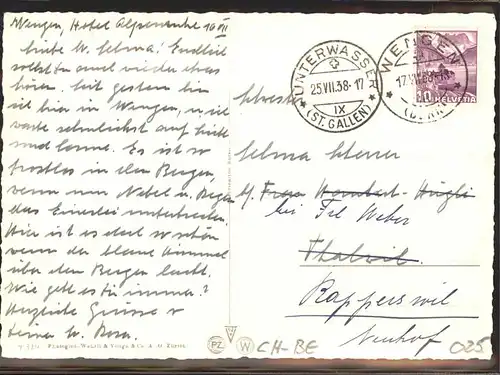 Wengen, Hotel Alpenruhe 16 VII
Liebe W. Selma! Endlich
sollst du auch wieder etwas
hören. Seit gestern bin
ich hier in Wengen, u. ich
warte sehnlichst auf Licht
und Sonne. Es ist so
trostlos in den Bergen,
wenn nur Nebel u. Regen
das Einerlei unterbrechen.
Hier ist es doch so schön
wenn der blaue Himmel
über den Bergen lacht.
Wie geht es Dir immer?
Herzliche Grüsse v.
Deiner W. Rosa.
Photoglob-Wehrli & Vouga & Co. A. G. Zürich
UNTERWASSER
25.VII.38-17
IX
(ST. GALLEN)
WENGEN
17.VII.38
(BERN)
10 HELVETIA
Schwester
Selma
bei Frl. Weber
Thalwil
Rapperswil
Neuhof
PZ W CH-BE 025